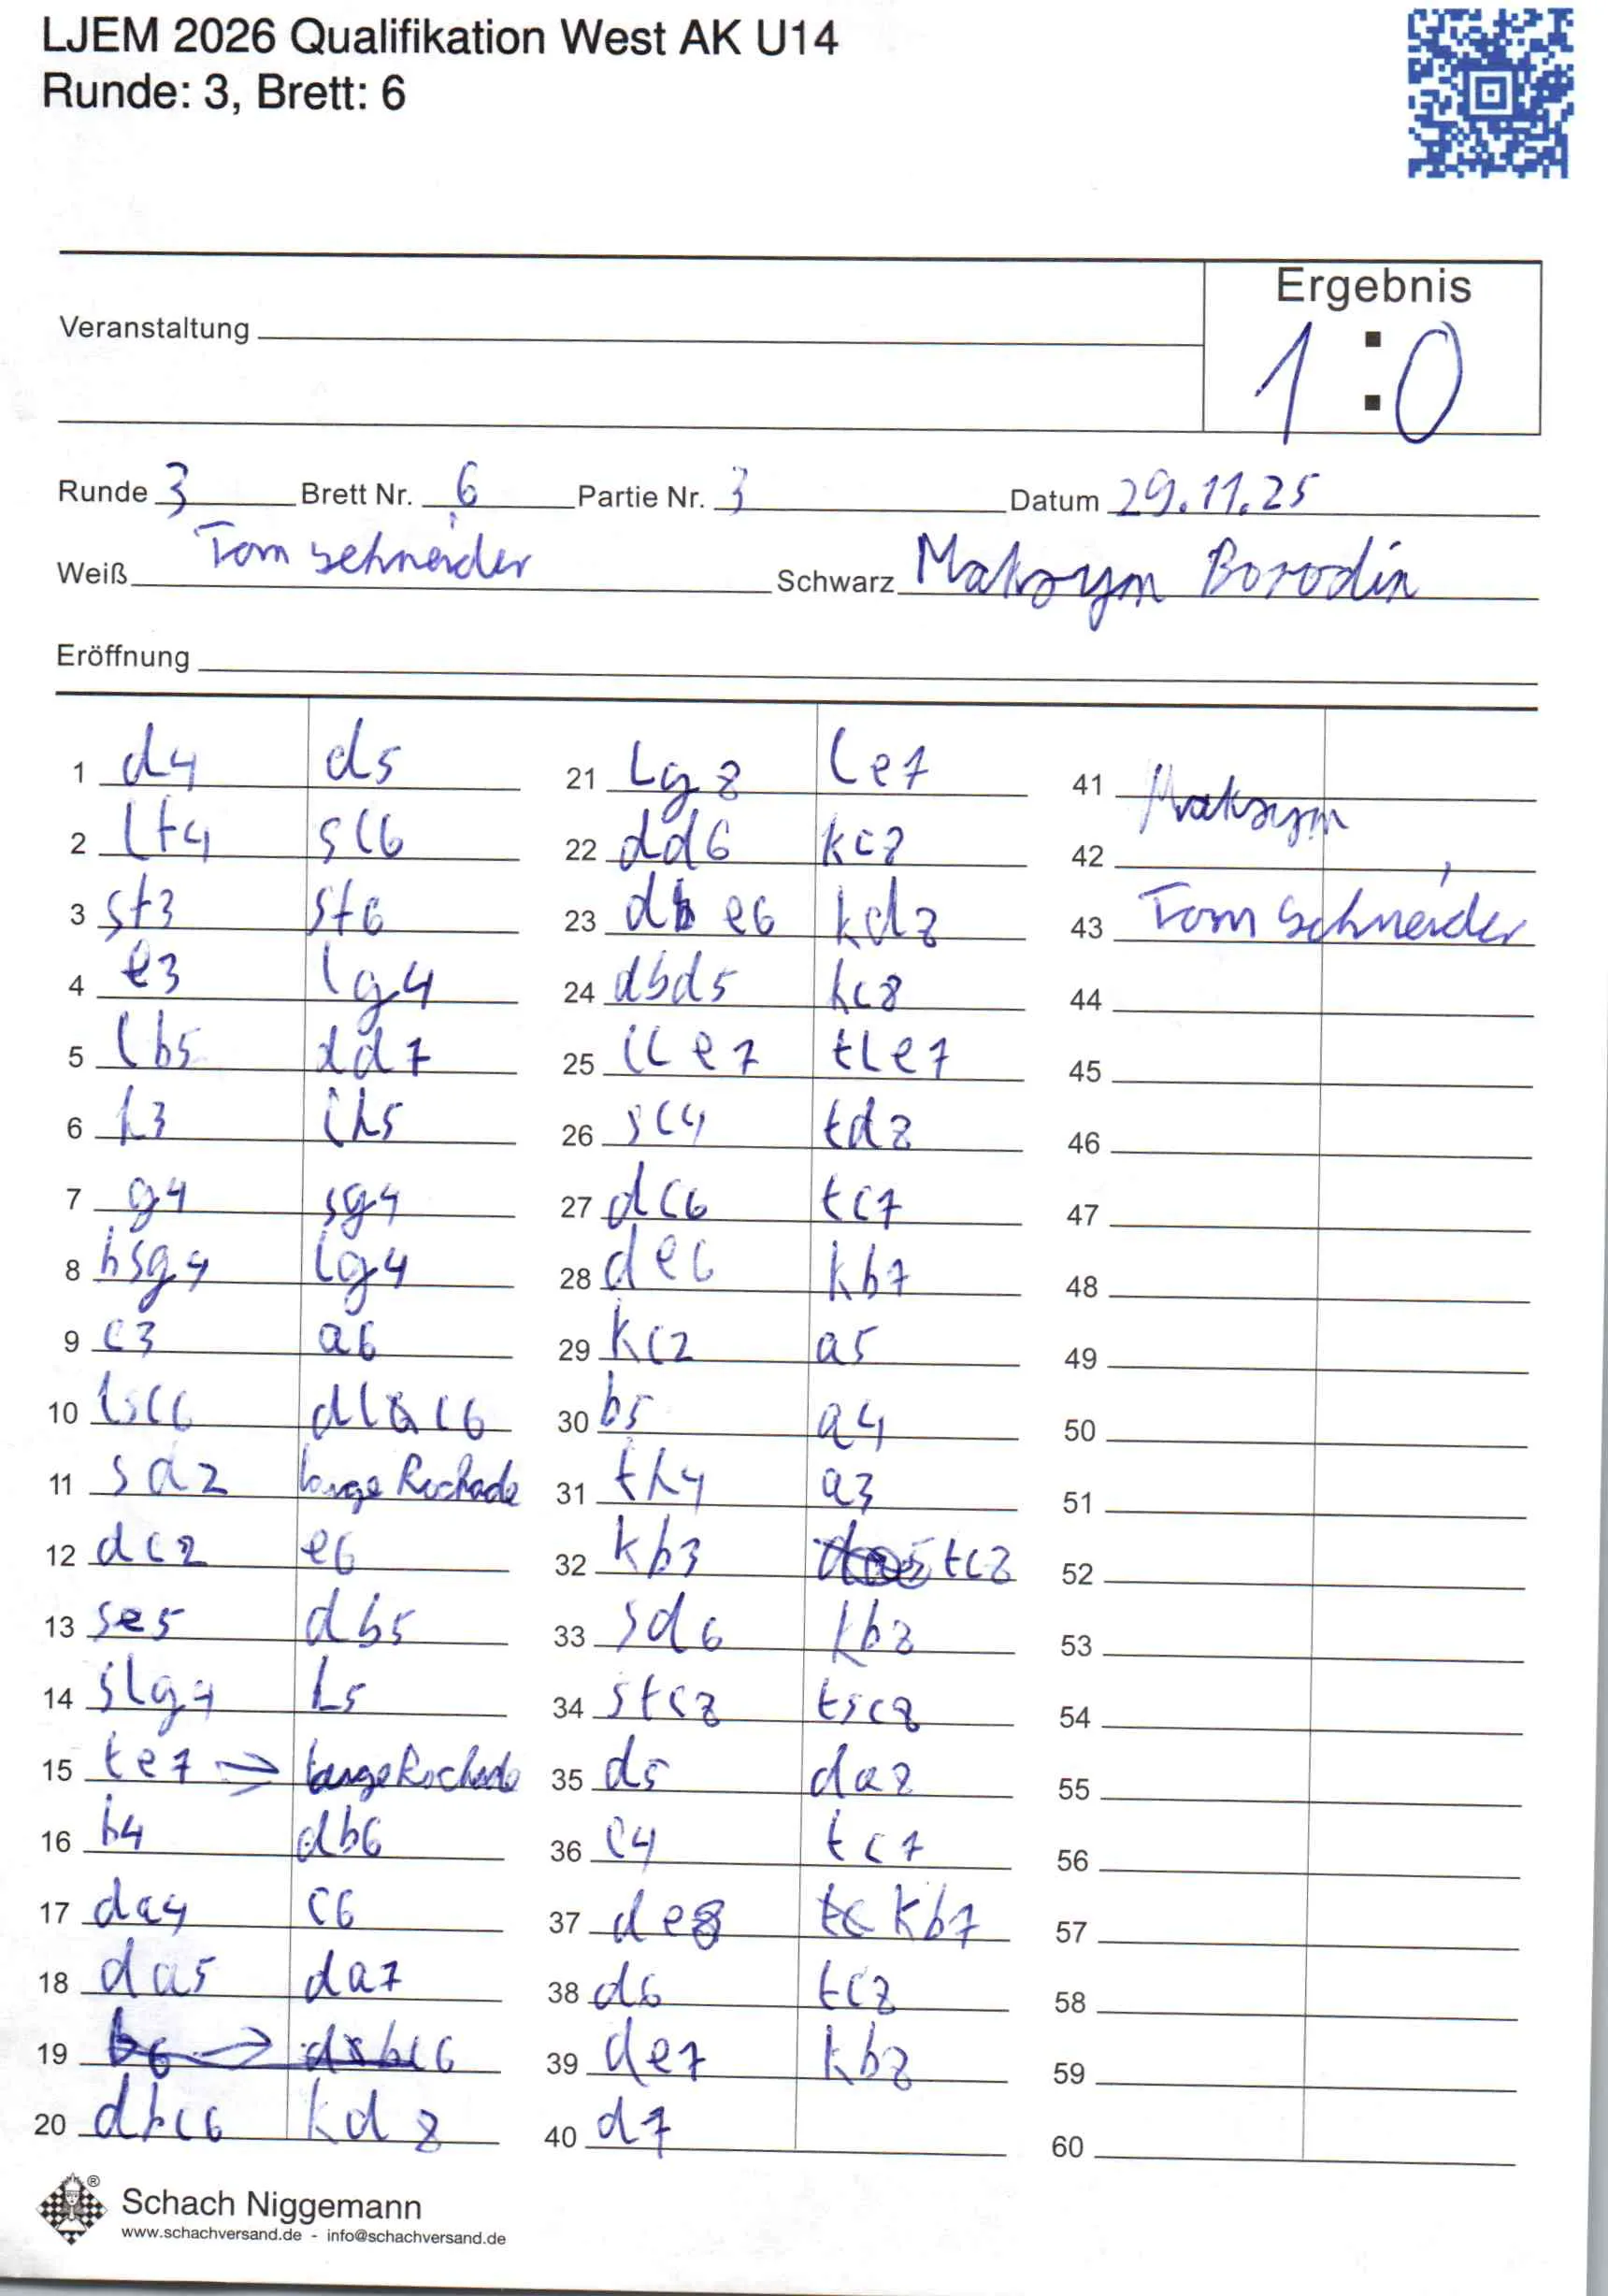 LJEM 2026 Qualifikation West AK U14
Runde: 3, Brett: 6
Ergebnis
1 : 0
Veranstaltung
Runde 3 Brett Nr. 6 Partie Nr. 3 Datum 29.11.25
Weiß Tom Schneider Schwarz Maksym Borodin
Eröffnung
1 d4 d5
2 lf4 sc6
3 sf3 sf6
4 e3 lg4
5 lb5 dd7
6 h3 lh5
7 g4 sg4
8 hsg4 lg4
9 c3 a6
10 lsc6 dlc6
11 sd2 lange Rochade
12 dc2 e6
13 se5 db5
14 slg4 h5
15 te7 lange Rochade
16 b4 db6
17 da4 c6
18 da5 da7
19
20 dbc6 kd8
21 lg8 le7
22 dd6 kc8
23 db e6 kd8
24 dbd5 kc8
25 ll e7 tle7
26 sc4 td8
27 dc6 tc7
28 de6 kb7
29 kc2 a5
30 b5 a4
31 th4 a3
32 kb3 tc8
33 sd6 kb8
34 stc8 tsc8
35 d5 da8
36 c4 tc7
37 de8 kb7
38 d6 tc8
39 de7 kb8
40 d7
41 Maksym
42
43 Tom Schneider
44
45
46
47
48
49
50
51
52
53
54
55
56
57
58
59
60
Schach Niggemann
www.schachversand.de - info@schachversand.de